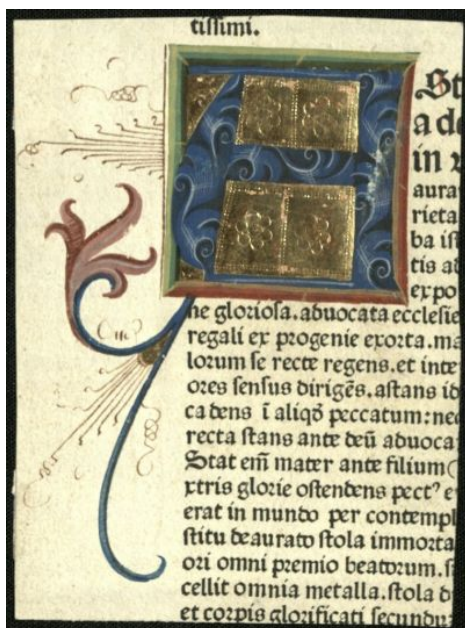 tissimi.
St
a de
in
aura
rieta
ba ist
tis ad
expo
ne gloriosa. advocata ecclesie
regali ex progenie exorta. ma
lorum se recte regens. et inte
ores sensus dirigēs. astans id
cadens ī aliqđ peccatum: nec
recta stans ante deū advoca
Stat em̄ mater ante filium
xtris glorie ostendens pectꝰ e
erat in mundo per contempl
stitu deaurato stola immorta
ori omni premio beatorum. s
cellit omnia metalla. stola d
et corpis glorificati secundu